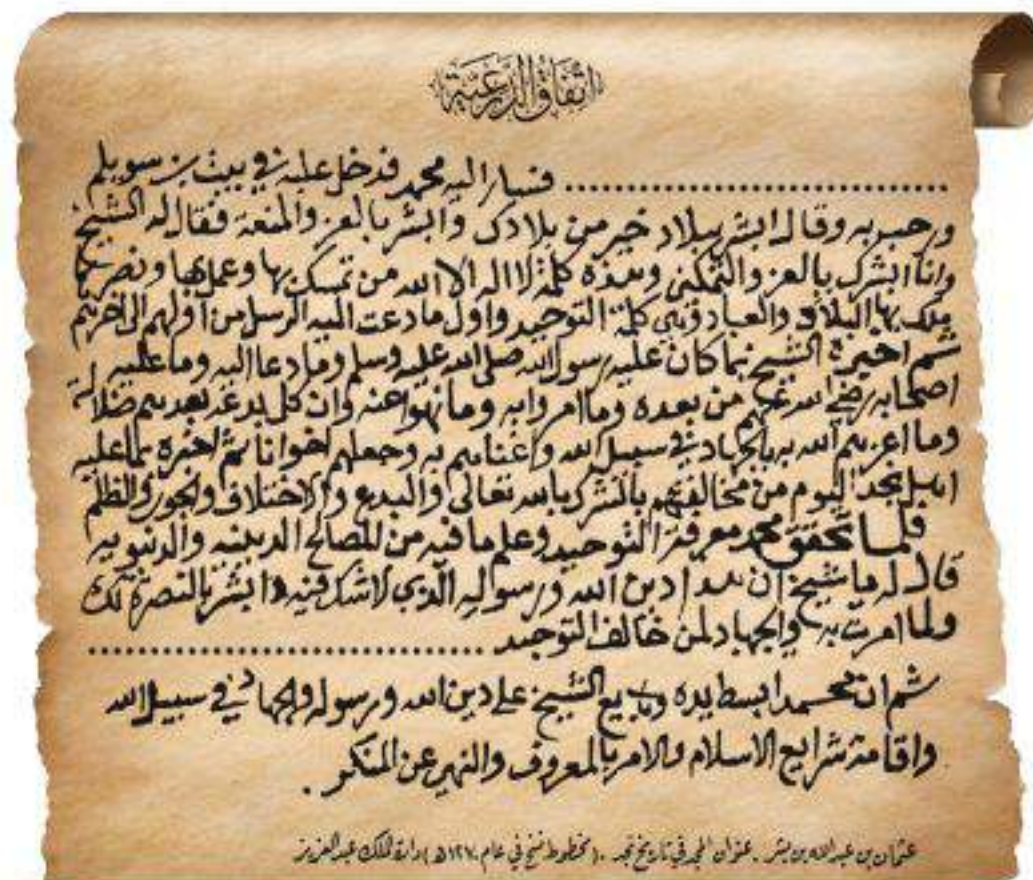 اتفاق الدرعية
فسار اليه محمد فدخل عليه في بيت بن سويلم
ورحب به وقال ابشر ببلاد خير من بلادك وابشر بالعز والمنعة فقال له الشيخ
وانا ابشرك بالعز والتمكين وهذه كلمة لا اله الا الله من تمسك بها وعمل بها ونصرها
ملك بها البلاد والعباد وهي كلمة التوحيد واول ما دعت اليه الرسل من اولهم الى اخرهم
ثم اخبره الشيخ بما كان عليه رسول الله صلى الله عليه وسلم وما دعا اليه وما عليه
اصحابه رضي الله عنهم من بعده وما امروا به وما نهوا عنه وان كل بدعه بعدهم ضلالة
وما اعزهم الله به بالجهاد في سبيل الله واغناهم به وجعلهم اخوانا ثم اخبره بما عليه
اهل نجد اليوم من مخالفتهم بالشرك بالله تعالى والبدع والاختلاف والجور والظلم
فلما تحقق محمد معرفة التوحيد وعلم ما فيه من المصالح الدينيه والدنيويه
قال له يا شيخ ان هذا دين الله ورسوله الذي لا شك فيه وابشر بالنصرة لك
ولما امرت به والجهاد لمن خالف التوحيد
ثم ان محمد ابسط يده وبايع الشيخ على دين الله ورسوله والجهاد في سبيل الله
واقامة شرايع الاسلام والامر بالمعروف والنهي عن المنكر .
عثمان بن عبدالله بن بشر . عنوان المجد في تاريخ نجد . ( مخطوط نسخ في عام ١٢٧٠هـ ) دارة الملك عبدالعزيز